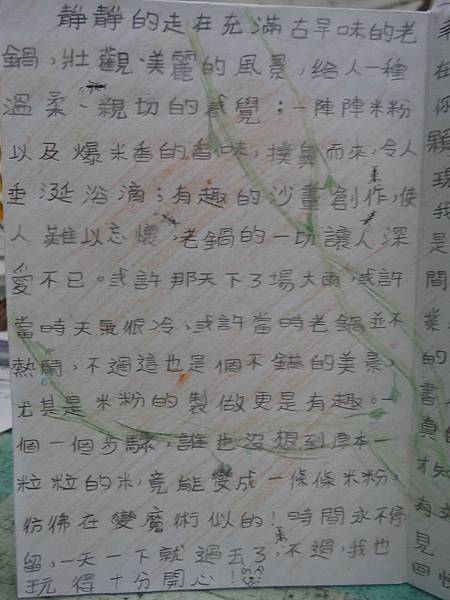 靜靜的走在充滿古早味的老
鍋，壯觀、美麗的風景，給人一種
溫柔、親切的感覺；一陣陣米粉
以及爆米香的香味，撲鼻而來，令人
垂涎浴滴；有趣的沙畫創作，使
人難以忘懷，老鍋的一切讓人深
愛不已。或許那天下了場大雨，或許
當時天氣很冷，或許當時老鍋並不
熱鬧，不過這也是個不錯的美景，
尤其是米粉的製做更是有趣。一
個一個步驟，誰也沒想到原本一
粒粒的米，竟能變成一條條米粉，
彷彿在變魔術似的！時間永不停
留，一天一下就過去了，不過，我也
玩得十分開心！
在
你
顆
現
我
是
間
業
的
書
真
才
有
見
回